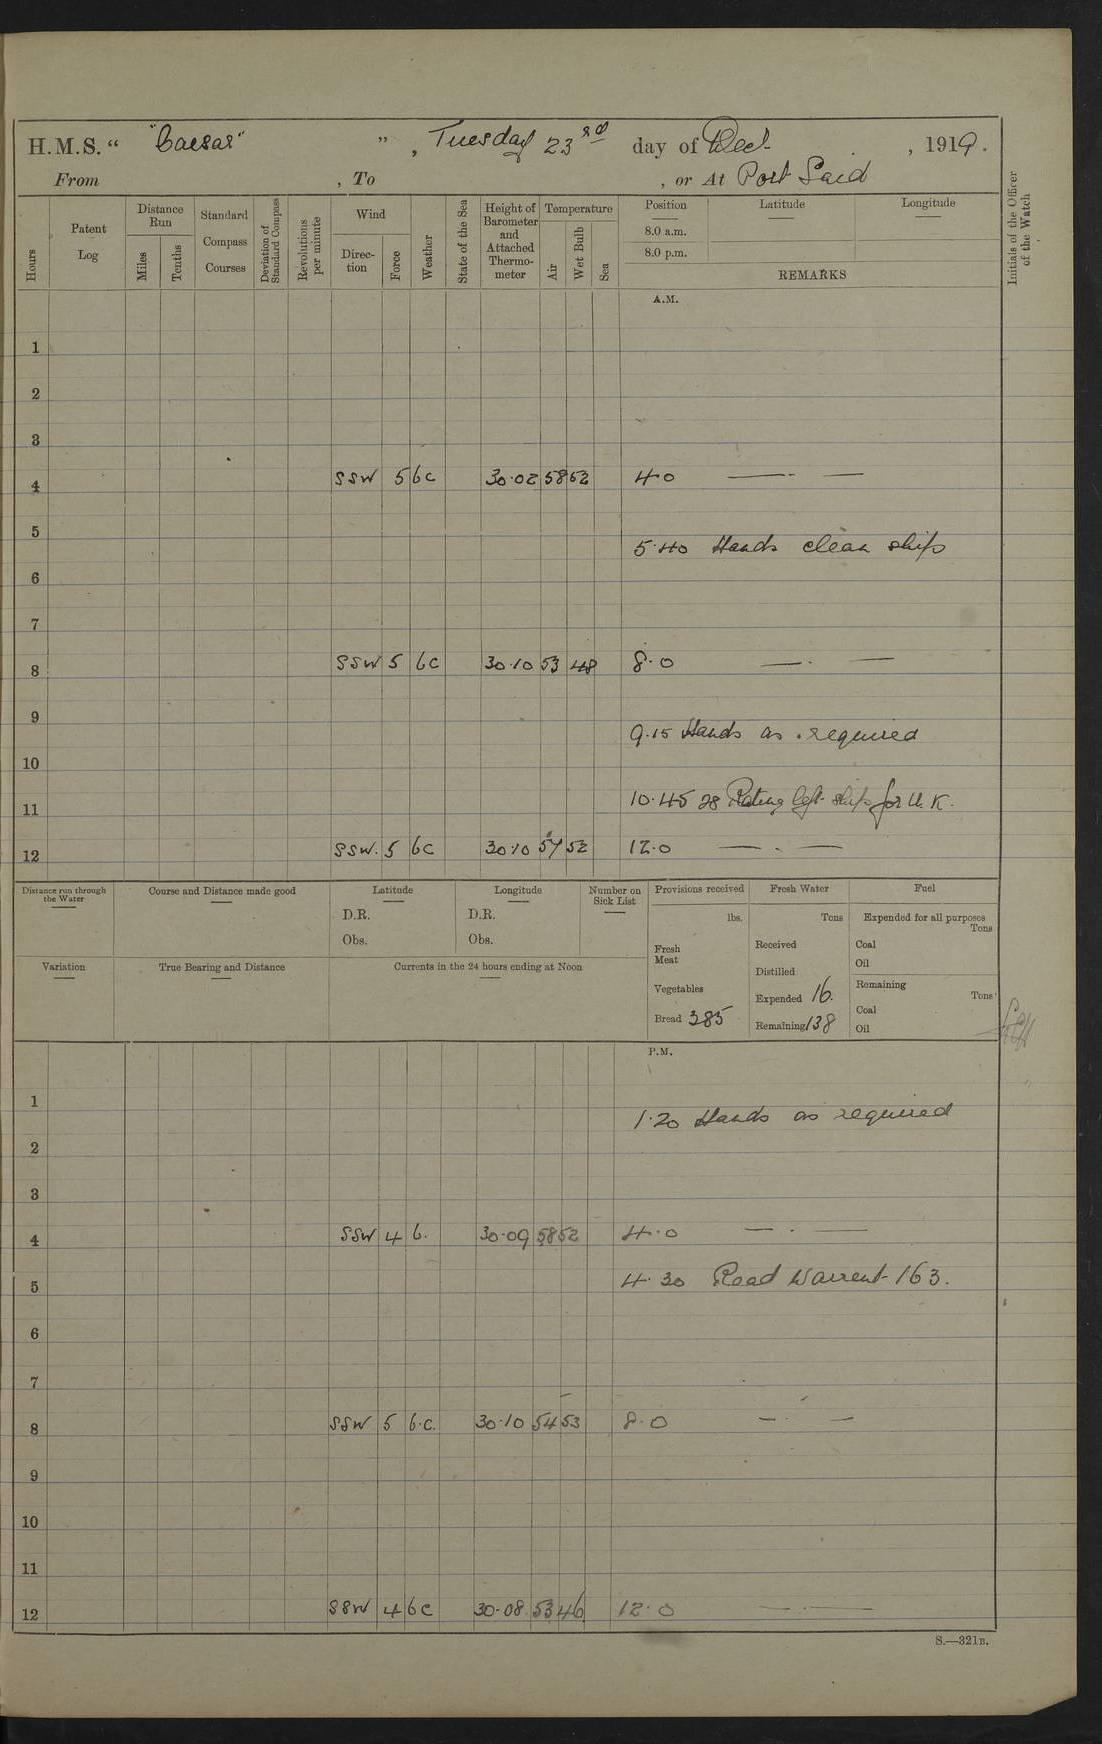 H.M.S. “ "Caesar" ” , Tuesday 23rd day of Dec. , 1919.
From , To , or At Port Said
Hours
Patent Log
Distance Run
Miles
Tenths
Standard Compass Courses
Deviation of Standard Compass
Revolutions per minute
Wind
Direc-tion
Force
Weather
State of the Sea
Height of Barometer and Attached Thermo-meter
Temperature
Air
Wet Bulb
Sea
Position Latitude Longitude
8.0 a.m.
8.0 p.m.
REMARKS
Initials of the Officer of the Watch
A.M.
1
2
3
4 SSW 5 bc 30.02 58 52 4.0 — . —
5 5.40 Hands clean ship
6
7
8 SSW 5 bc 30.10 53 48 8.0 — . —
9 9.15 Hands as required
10
11 10.45 28 Rating left ship for U.K.
12 SSW. 5 bc 30.10 57 52 12.0 — . —
Distance run through the Water
Course and Distance made good
Latitude
D.R.
Obs.
Longitude
D.R.
Obs.
Number on Sick List
Variation
True Bearing and Distance
Currents in the 24 hours ending at Noon
Provisions received
lbs.
Fresh Meat
Vegetables
Bread 385
Fresh Water
Tons
Received
Distilled
Expended 16.
Remaining 138
Fuel
Expended for all purposes
Tons
Coal
Oil
Remaining
Tons
Coal
Oil
P.M.
1 1.20 Hands as required
2
3
4 SSW 4 b. 30.09 58 52 4.0 — . —
5 4.30 Read Warrent 163.
6
7
8 SSW 5 b.c. 30.10 54 53 8.0 — . —
9
10
11
12 SSW 4 bc 30.08 53 46 12.0 — . —
S.—321B.